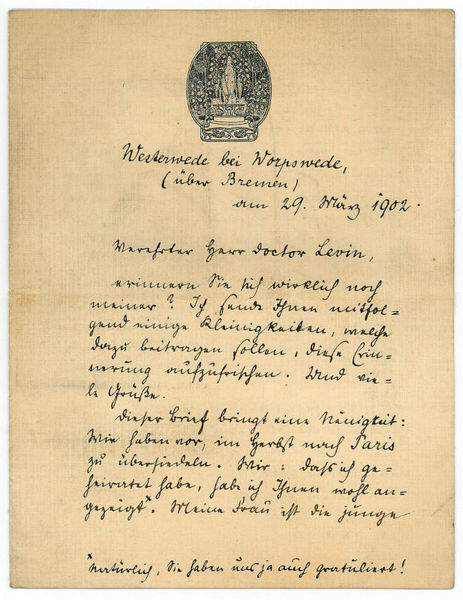 Westerwede bei Worpswede,
(über Bremen)
am 29. März 1902.
Verehrter Herr Doctor Levin,
erinnern Sie sich wirklich noch
meiner? Ich sende Ihnen mitfol=
gend einige Kleinigkeiten, welche
dazu beitragen sollen, diese Erin=
nerung aufzufrischen. Und vie=
le Grüße.
Dieser Brief bringt eine Neuigkeit:
Wir haben vor, im Herbst nach Paris
zu übersiedeln. Wir: dass ich ge=
heiratet habe, habe ich Ihnen wohl an=
gezeigt*. Meine Frau ist die junge
*Natürlich, Sie haben uns ja auch gratuliert!